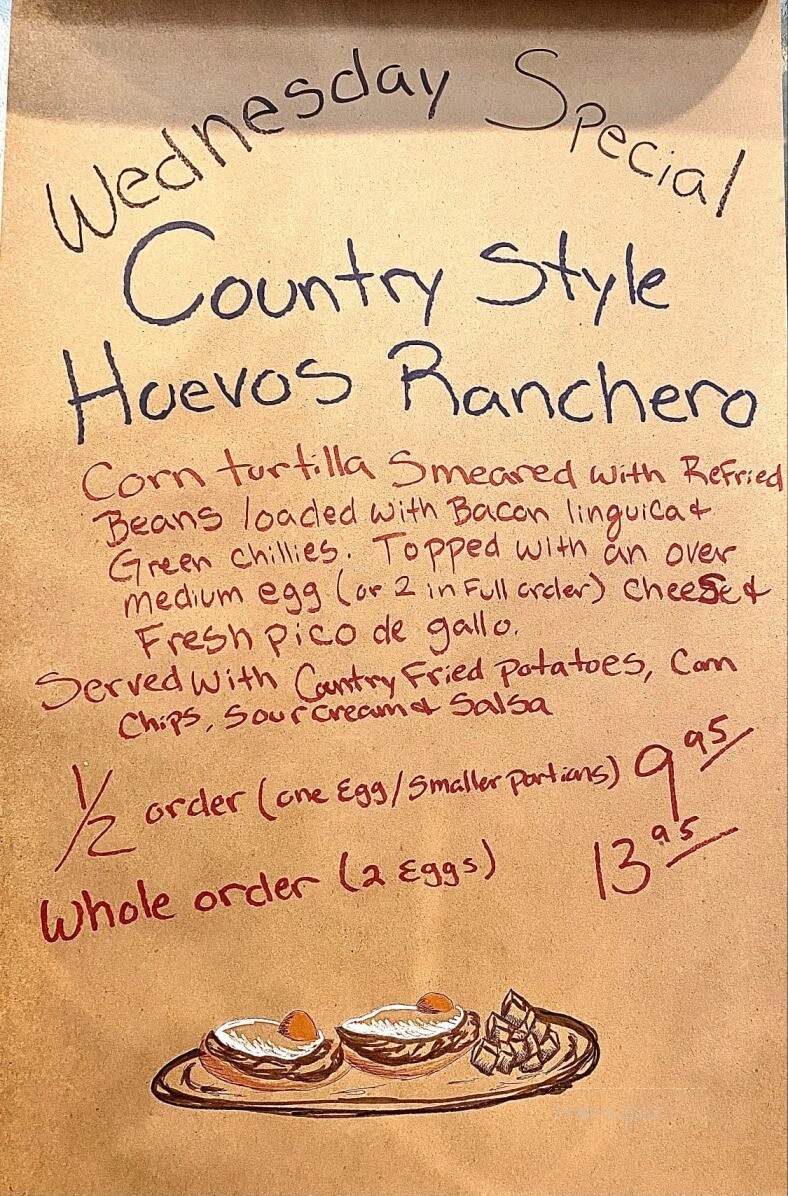 Wednesday Special
Country Style
Huevos Ranchero
Corn turtilla Smeared with Refried
Beans loaded with Bacon linguica &
Green chillies. Topped with an over
medium egg (or 2 in Full order) cheese &
Fresh pico de gallo.
Served with Country Fried potatoes, Corn
Chips, Sour cream & Salsa
1/2 order (one Egg/Smaller portions) 9.95
Whole order (2 Eggs) 13.95